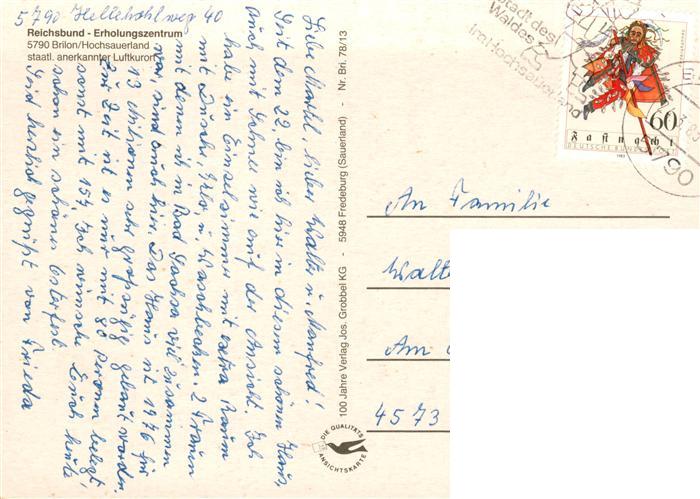 5790 Hellehohlweg 40
Reichsbund - Erholungszentrum
5790 Brilon/Hochsauerland
staatl. anerkannter Luftkurort
Liebe Martel, lieber Walter u. Manfred!
Seit dem 22. bin ich hier in diesem schönen Haus,
auch mit Schnee wie auf der Ansicht. Ich
habe ein Einzelzimmer mit extra Raum
mit Dusche, Klo u. Waschbecken. 2 Frauen
mit denen ich in Bad Sachsa viel zusammen
war, sind auch hier. Das Haus ist 1976 für
13 Millionen sehr großzügig gebaut worden.
Zur Zeit ist es nur mit 80 Personen belegt,
sonst mit 154. Ich wünsche Euch heute
schon ein schönes Osterfest.
Seid herzlich gegrüßt von Frieda
100 Jahre Verlag Jos. Grobbel KG - 5948 Fredeburg (Sauerland) - Nr. Bri. 78/13
DIE QUALITÄTS
ANSICHTSKARTE
Stadt des
Waldes
im Hochsauerland
60
Fastnacht
DEUTSCHE BUNDESPOST
1983
5790
An Familie
Walt
Am
4573